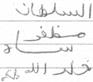 السلطان
مظفر
شاه
خلد الله ملكه